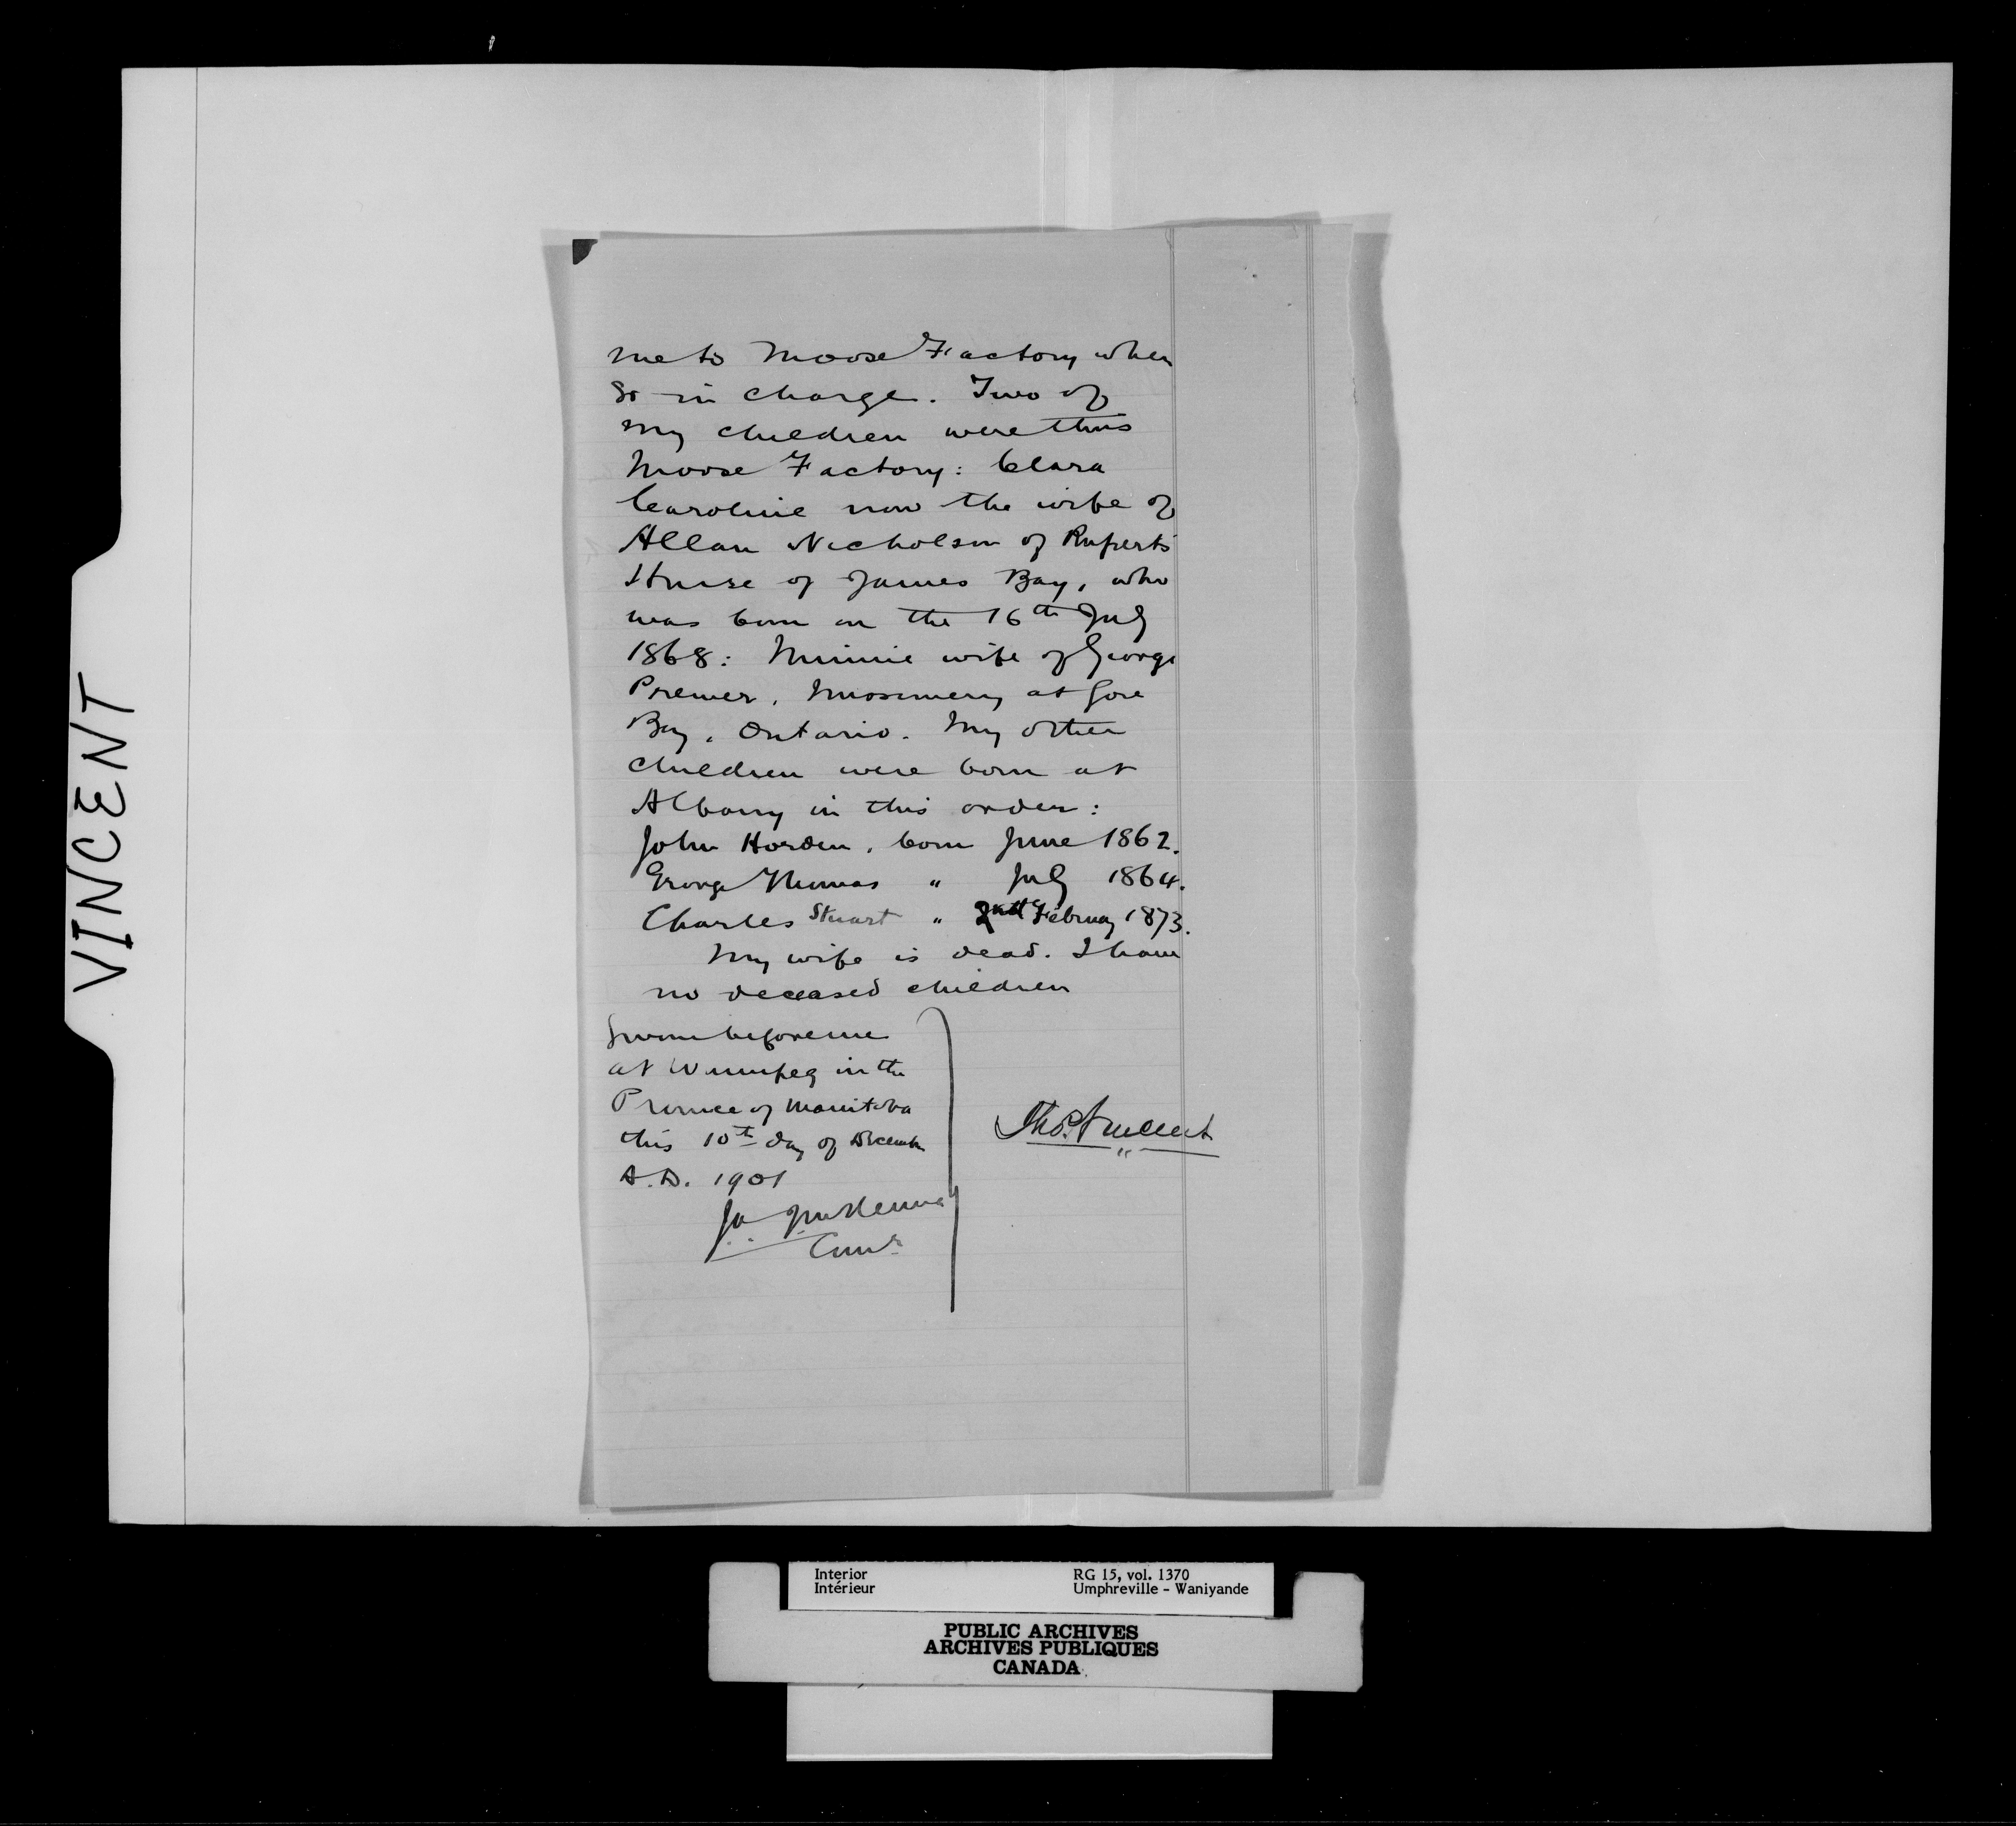 VINCENT
me to Moose Factory when
so in charge. Two of
my children were thus
Moose Factory: Clara
Caroline now the wife of
Allan Nicholson of Ruperts
House of James Bay, who
was born on the 16th July
1868: Minnie wife of George
at Gore
Bay, Ontario. My other
children were born at
Albany in this order:
John Horden, born June 1862.
George Thomas " July 1864.
Charles Stuart " February 1873.
My wife is dead. I have
no deceased children
Sworn before me
at Winnipeg in the
Province of Manitoba
this 10th day of December
A.D. 1901
Thos. Vincent
McKenna
Comr
Interior RG 15, vol. 1370
Intérieur Umphreville - Waniyande
PUBLIC ARCHIVES
ARCHIVES PUBLIQUES
CANADA